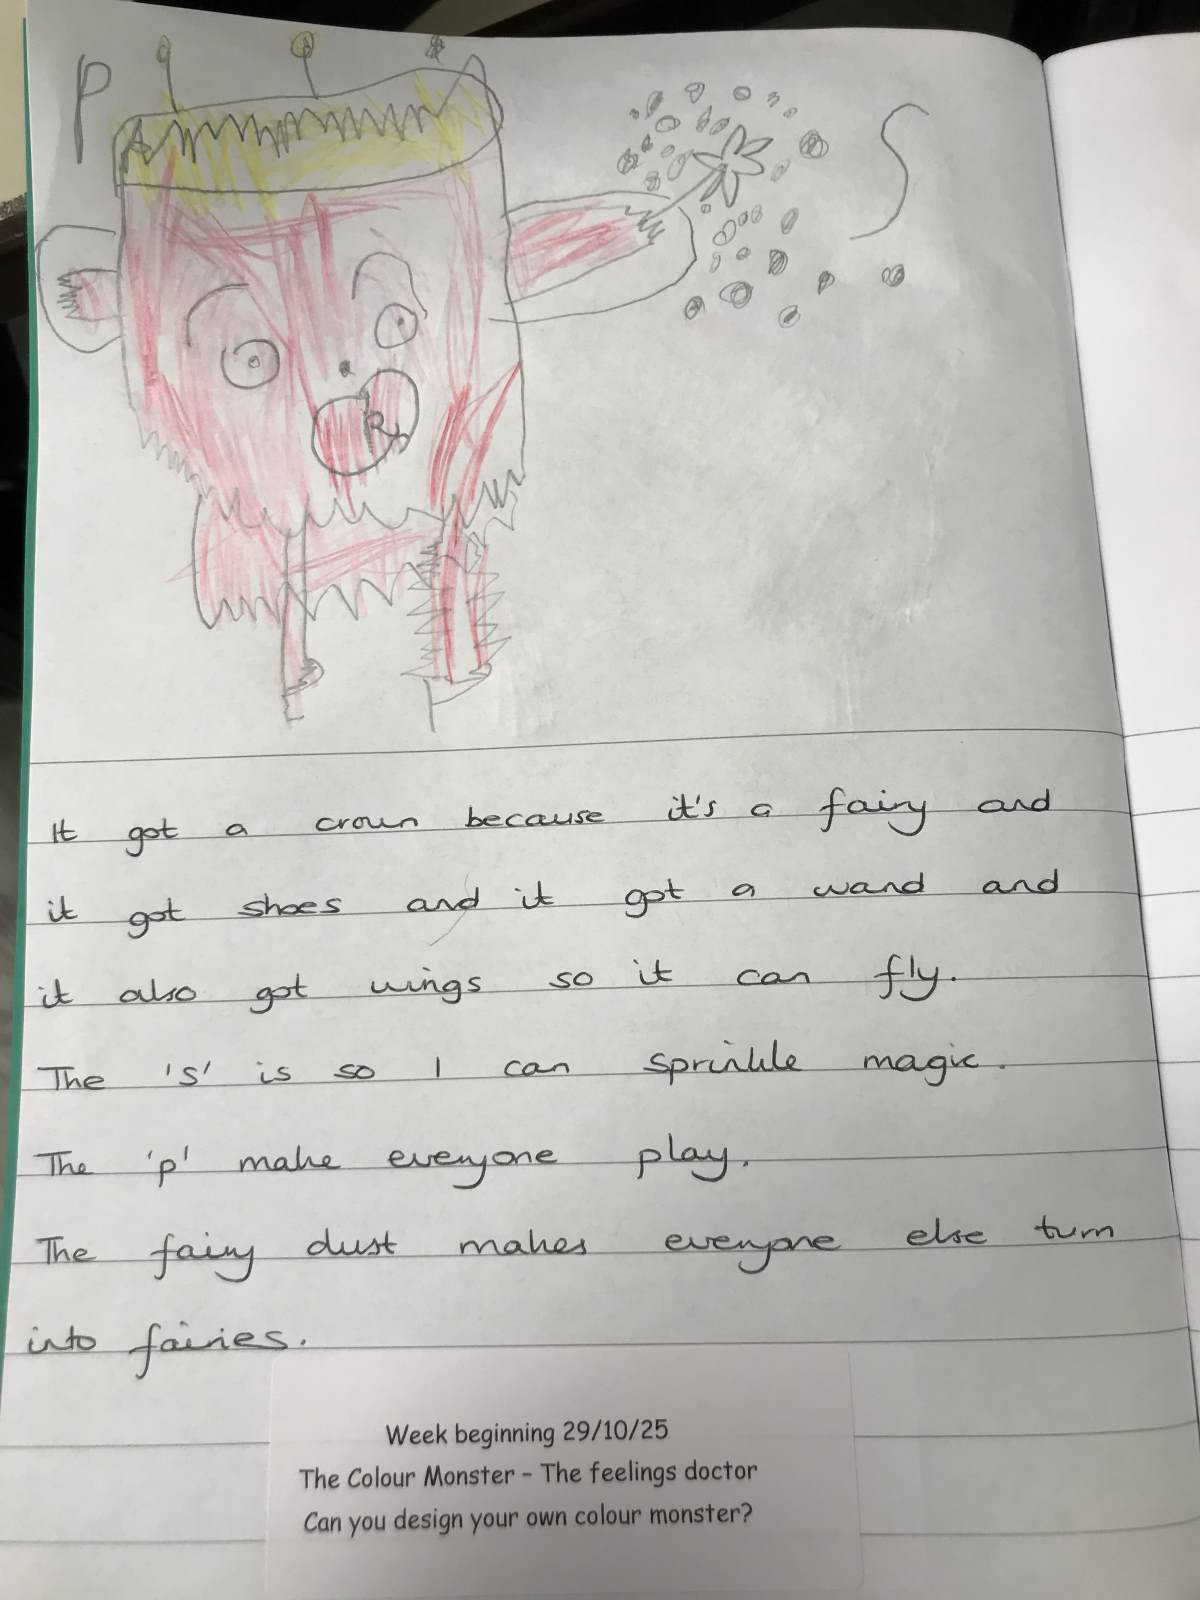 P
S
R
It got a crown because it's a fairy and
it got shoes and it got a wand and
it also got wings so it can fly.
The 's' is so I can sprinkle magic.
The 'p' make everyone play.
The fairy dust makes everyone else turn
into fairies.
Week beginning 29/10/25
The Colour Monster - The feelings doctor
Can you design your own colour monster?